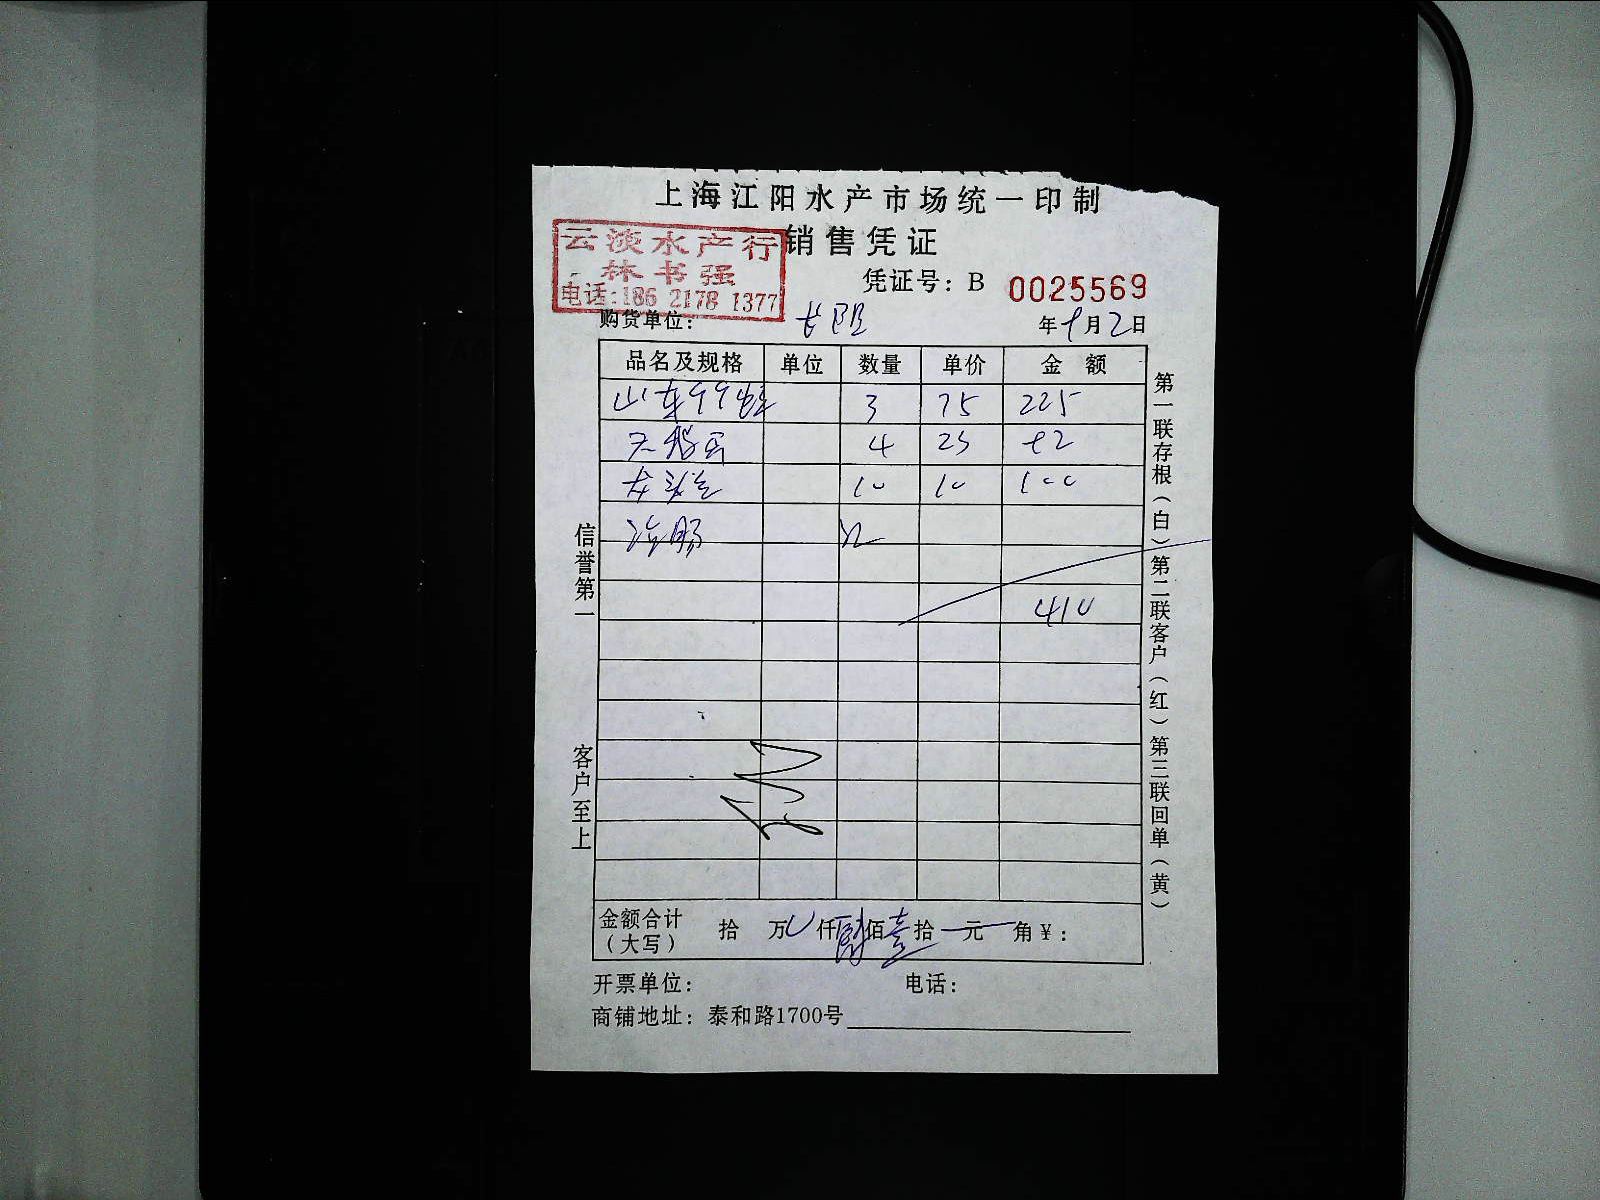 上海江阳水产市场统一印制
销售凭证
云淡水产行
林书强
电话:186 2178 1377
凭证号: B 0025569
购货单位:
年 9月2日
品名及规格 单位 数量 单价 金额
山东 3 75 225
4 23 92
10 10 100
410
信誉第一
客户至上
第一联存根(白)第二联客户(红)第三联回单(黄)
金额合计(大写) 拾 万 仟 佰壹拾 元 角 ¥:
开票单位: 电话:
商铺地址: 泰和路1700号